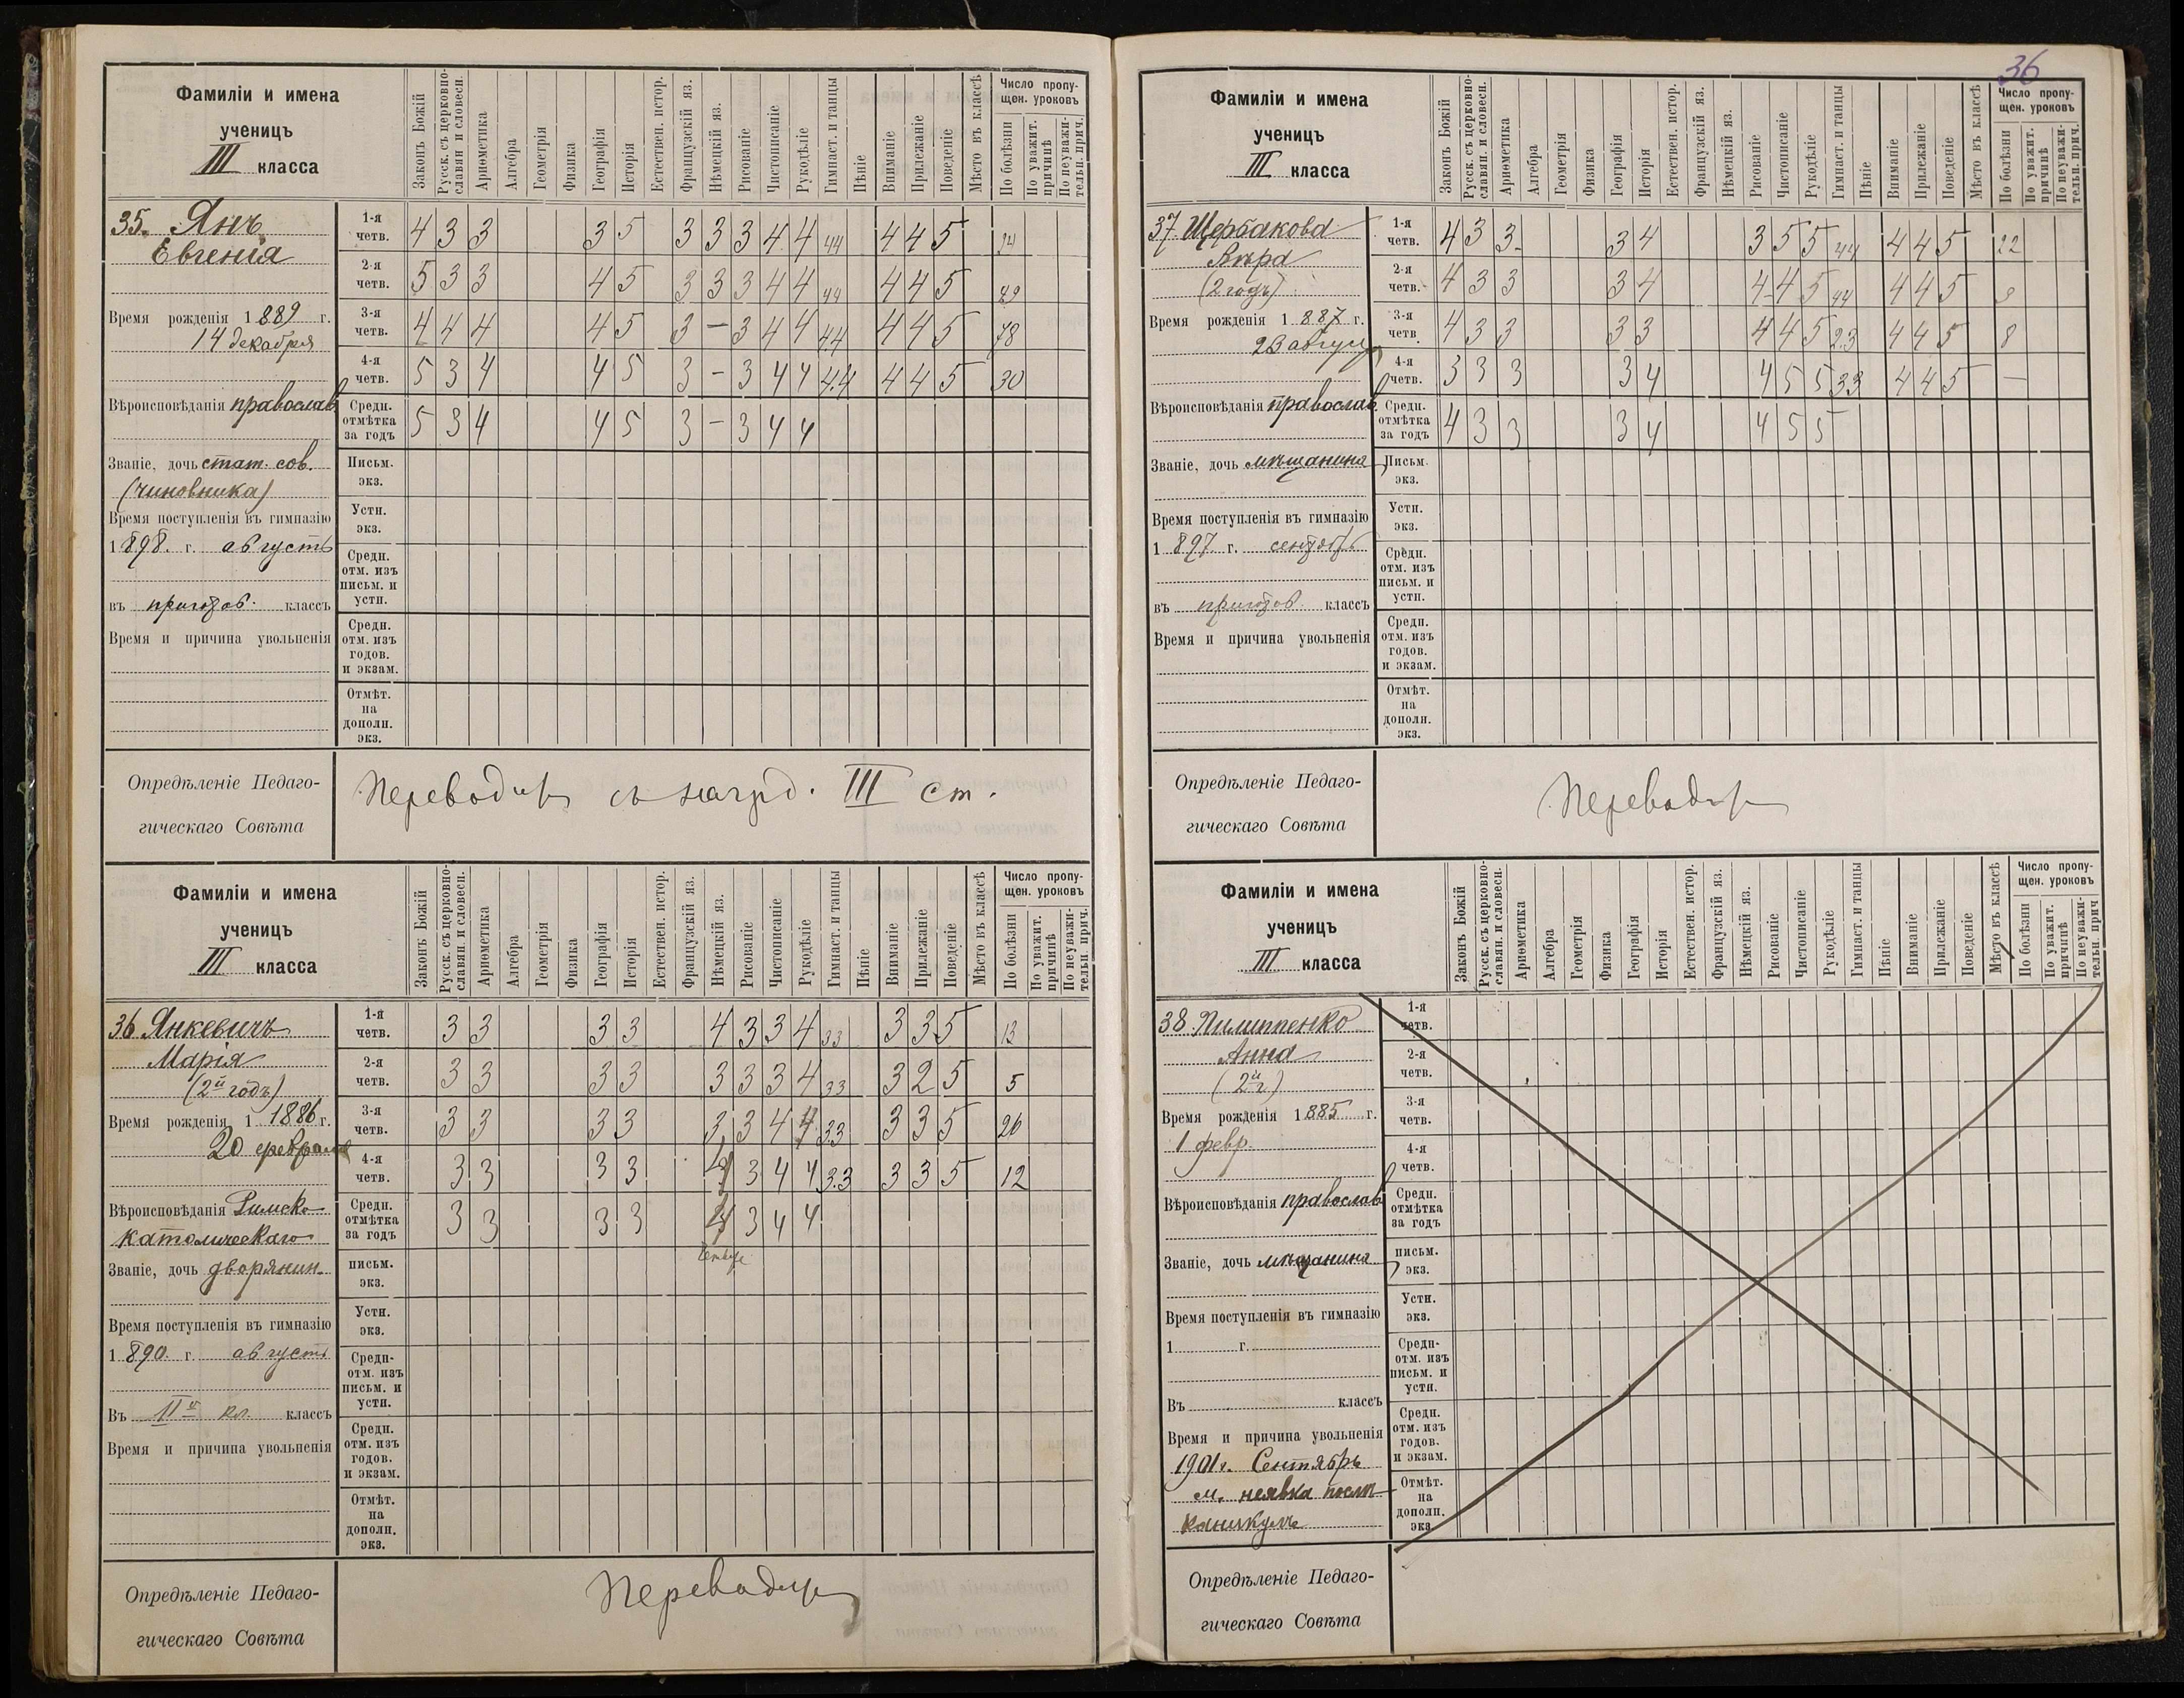 36
Фамиліи и имена
ученицъ
III класса
Законъ Божій
Русск. съ церковно-
славян. и словесн.
Ариѳметика
Алгебра
Геометрія
Физика
Географія
Исторія
Естествен. истор.
Французскій яз.
Нѣмецкій яз.
Рисованіе
Чистописаніе
Рукодѣліе
Гимнаст. и танцы
Пѣніе
Вниманіе
Прилежаніе
Поведеніе
Мѣсто въ классѣ
Число пропу-
щен. уроковъ
По болѣзни
По уважит.
причинѣ
По неуважи-
тельн. прич.
35. Янъ
Евгенія
Время рожденія 1889 г.
14 декабря
Вѣроисповѣданія православ
Званіе, дочь стат. сов.
(чиновника)
Время поступленія въ гимназію
1898. г. августъ
въ пригов. классъ
Время и причина увольненія
1-я четв. 4 3 3 3 5 3 3 3 4 4 44 4 4 5 14
2-я четв. 5 3 3 4 5 3 3 3 4 4 44 4 4 5 49
3-я четв. 4 4 4 4 5 3 — 3 4 4 44 4 4 5 78
4-я четв. 5 3 4 4 5 3 — 3 4 4 4.4 4 4 5 30
Средн. отмѣтка за годъ 5 3 4 4 5 3 — 3 4 4
Письм.
экз.
Устн.
экз.
Средн.
отм. изъ
письм. и
устн.
Средн.
отм. изъ
годов.
и экзам.
Отмѣт.
на
дополн.
экз.
Опредѣленіе Педаго-
гическаго Совѣта
Переводит с наград. III ст.
Фамиліи и имена
ученицъ
III класса
Законъ Божій
Русск. съ церковно-
славян. и словесн.
Ариѳметика
Алгебра
Геометрія
Физика
Географія
Исторія
Естествен. истор.
Французскій яз.
Нѣмецкій яз.
Рисованіе
Чистописаніе
Рукодѣліе
Гимнаст. и танцы
Пѣніе
Вниманіе
Прилежаніе
Поведеніе
Мѣсто въ классѣ
Число пропу-
щен. уроковъ
По болѣзни
По уважит.
причинѣ
По неуважи-
тельн. прич.
36 Янкевичъ
Марія
(2й годъ)
Время рожденія 1 1886 г.
20 февраля
Вѣроисповѣданія Римско
католическаго
Званіе, дочь дворянин.
Время поступленія въ гимназію
1890. г. августъ
Въ IIй кл. классъ
Время и причина увольненія
1-я четв. 3 3 3 3 4 3 3 4 33 3 3 5 13
2-я четв. 3 3 3 3 3 3 3 4 33 3 2 5 5
3-я четв. 3 3 3 3 3 3 4 4 33 3 3 5 26
4-я четв. 3 3 3 3 4 3 4 4 3.3 3 3 5 12
Средн. отмѣтка за годъ 3 3 3 3 4 3 4 4
письм.
экз.
Устн.
экз.
Средн-
отм. изъ
письм. и
устн.
Средн.
отм. изъ
годов.
и экзам.
Отмѣт.
на
дополн.
экз.
Опредѣленіе Педаго-
гическаго Совѣта
Переводит
Фамиліи и имена
ученицъ
III класса
Законъ Божій
Русск. съ церковно-
славян. и словесн.
Ариѳметика
Алгебра
Геометрія
Физика
Географія
Исторія
Естествен. истор.
Французскій яз.
Нѣмецкій яз.
Рисованіе
Чистописаніе
Рукодѣліе
Гимнаст. и танцы
Пѣніе
Вниманіе
Прилежаніе
Поведеніе
Мѣсто въ классѣ
Число пропу-
щен. уроковъ
По болѣзни
По уважит.
причинѣ
По неуважи-
тельн. прич.
37 Щербакова
Вѣра
(2 годъ)
Время рожденія 1887 г.
23 август
Вѣроисповѣданія православ.
Званіе, дочь мѣщанина
Время поступленія въ гимназію
1897 г. сентябрь
въ пригов. классъ
Время и причина увольненія
1-я четв. 4 3 3 3 4 3 5 5 44 4 4 5 22
2-я четв. 4 3 3 3 4 4 4 5 44 4 4 5 9
3-я четв. 4 3 3 3 3 4 4 5 2.3 4 4 5 8
4-я четв. 3 3 3 3 4 4 5 5 33 4 4 5 —
Средн. отмѣтка за годъ 4 3 3 3 4 4 5 5
Письм.
экз.
Устн.
экз.
Средн.
отм. изъ
письм. и
устн.
Средн.
отм. изъ
годов.
и экзам.
Отмѣт.
на
дополн.
экз.
Опредѣленіе Педаго-
гическаго Совѣта
Переводит
Фамиліи и имена
ученицъ
III класса
Законъ Божій
Русск. съ церковно-
славян. и словесн.
Ариѳметика
Алгебра
Геометрія
Физика
Географія
Исторія
Естествен. истор.
Французскій яз.
Нѣмецкій яз.
Рисованіе
Чистописаніе
Рукодѣліе
Гимнаст. и танцы
Пѣніе
Вниманіе
Прилежаніе
Поведеніе
Мѣсто въ классѣ
Число пропу-
щен. уроковъ
По болѣзни
По уважит.
причинѣ
По неуважи-
тельн. прич
38 Пилиппенко
Анна
(2й г.)
Время рожденія 1885 г.
1 февр.
Вѣроисповѣданія православ
Званіе, дочь мѣщанина
Время поступленія въ гимназію
1 г.
Въ классъ
Время и причина увольненія
1901 г. Сентябрь
м. неявка послѣ
каникулъ
1-я
четв.
2-я
четв.
3-я
четв.
4-я
четв.
Средн.
отмѣтка
за годъ
письм.
экз.
Устн.
экз.
Средн-
отм. изъ
письм. и
устн.
Средн.
отм. изъ
годов.
и экзам.
Отмѣт.
на
дополн.
экз
Опредѣленіе Педаго-
гическаго Совѣта